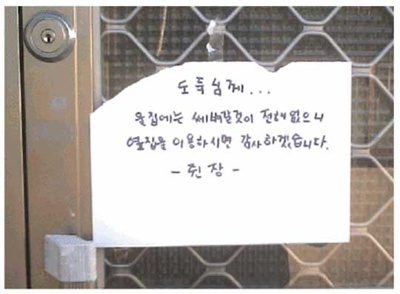 도둑님께...
울집에는 쎄벼갈것이 전혜없으니
옆집을 이용하시면 감사하겠습니다.
- 쥔장 -